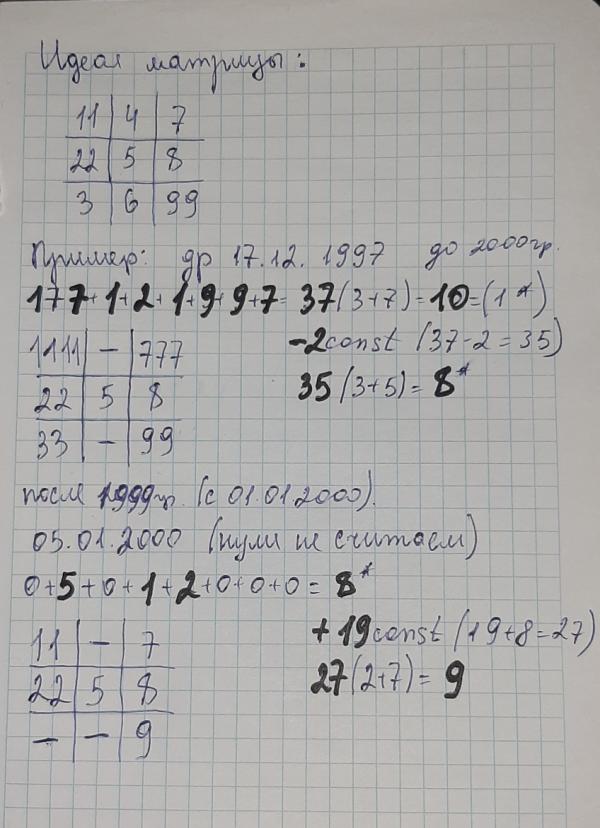 Идеал матрицы:
11 | 4 | 7
22 | 5 | 8
3 | 6 | 99
Пример: др 17.12.1997 до 2000гр.
177+1+2+1+9+9+7=37(3+7)=10=(1*)
1111 | - | 777
22 | 5 | 8
33 | - | 99
-2const (37-2=35)
35(3+5)=8*
после 1999гр. (с 01.01.2000).
05.01.2000 (нули не считаем)
0+5+0+1+2+0+0+0=8*
11 | - | 7
22 | 5 | 8
- | - | 9
+19const(19+8=27)
27(2+7)=9